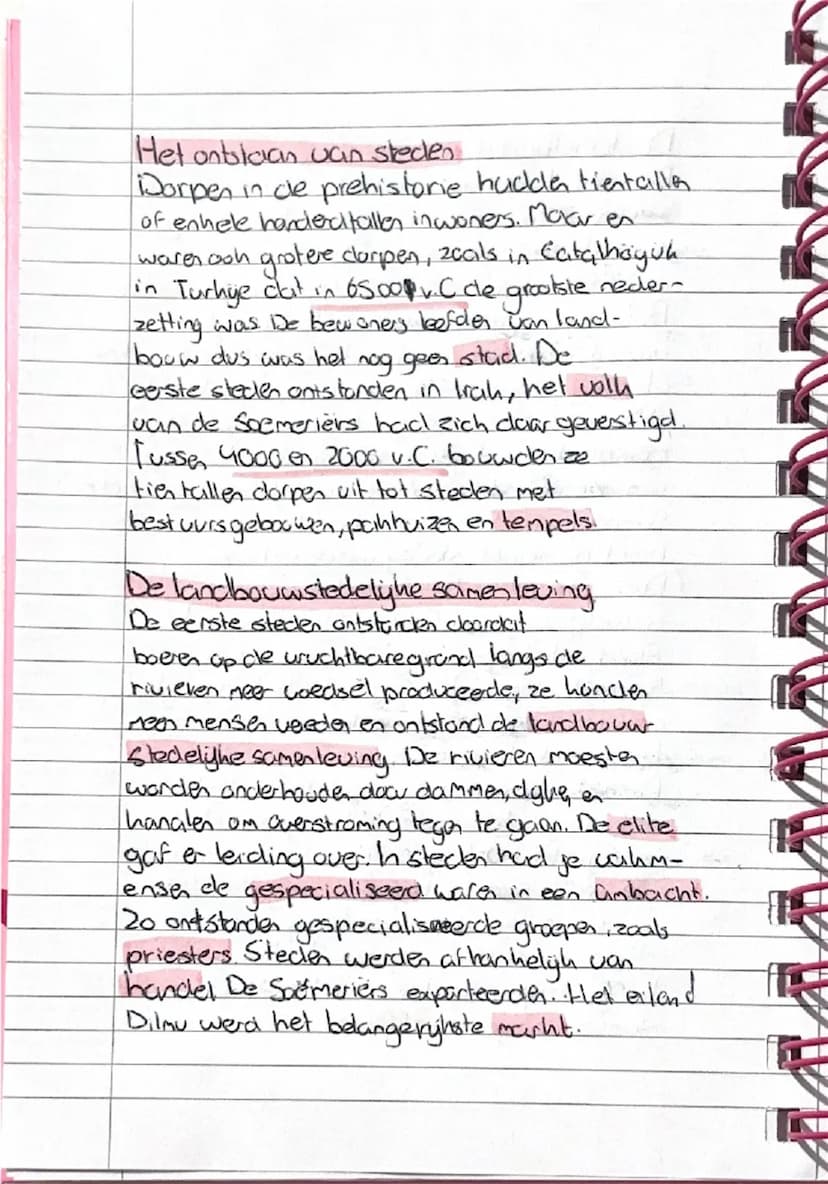 Het ontstaan van steden
Dorpen in de prehistorie hadden tientallen
of enkele honderdtallen inwoners. Maar er
waren ook grotere dorpen, zoals in Çatalhöyük
in Turkije dat in 6500 v.C de grootste neder-
zetting was De bewoners leefden van land-
bouw dus was het nog geen stad. De
eerste steden ontstonden in Irak, het volk
van de Soemeriërs had zich daar gevestigd.
Tussen 4000 en 2000 v.C. bouwden ze
tientallen dorpen uit tot steden met
bestuursgebouwen, pakhuizen en tempels.
De landbouwstedelijke samenleving
De eerste steden ontstonden doordat
boeren op de vruchtbare grond langs de
rivieren meer voedsel produceerde, ze konden
meer mensen voeden en ontstond de landbouw-
stedelijke samenleving. De rivieren moesten
worden onderhouden door dammen, dijken en
kanalen om overstroming tegen te gaan. De elite
gaf er leiding over. In steden had je vakm-
ensen de gespecialiseerd waren in een ambacht.
Zo ontstonden gespecialiseerde groepen, zoals
priesters. Steden werden afhankelijk van
handel De Soemeriërs exporteerden. Het eiland
Dilmu werd het belangerijkste markt.